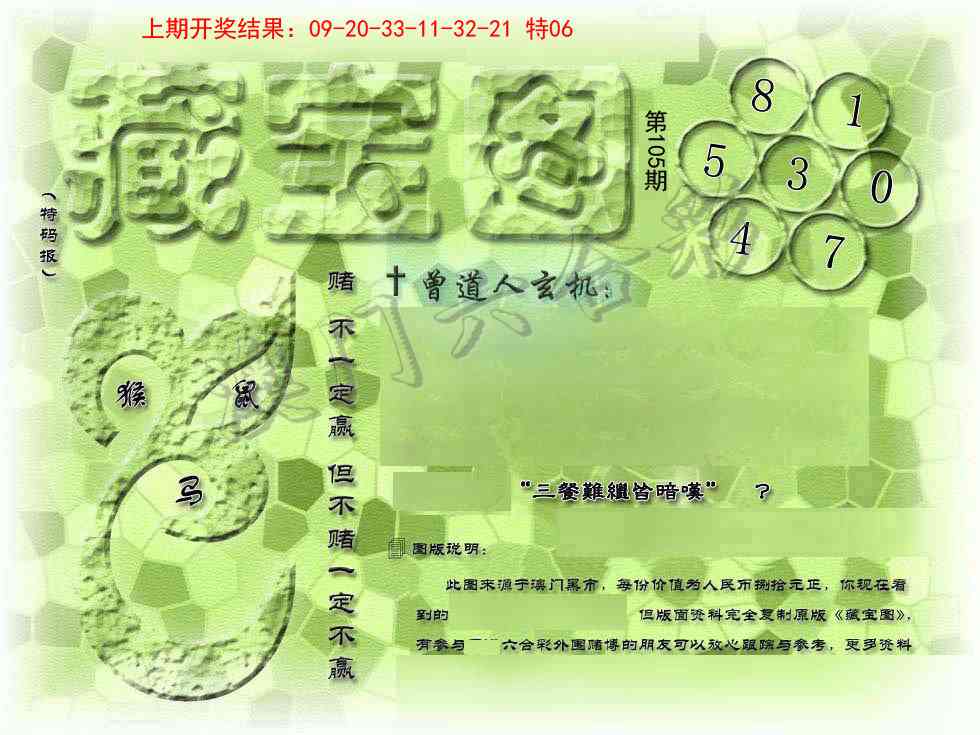 上期开奖结果：09-20-33-11-32-21 特06
藏宝图
（特码报）
第105期
8
1
5
3
0
4
7
澳门六合彩
†曾道人玄机：
猴
鼠
马
赌不一定赢 但不赌一定不赢
“三餐難繼皆暗嘆” ？
图版说明：
此图来源于澳门黑市，每份价值为人民币捌拾元正，你现在看
到的 但版面资料完全复制原版《藏宝图》，
有参与 六合彩外围赌博的朋友可以放心跟踪与参考，更多资料